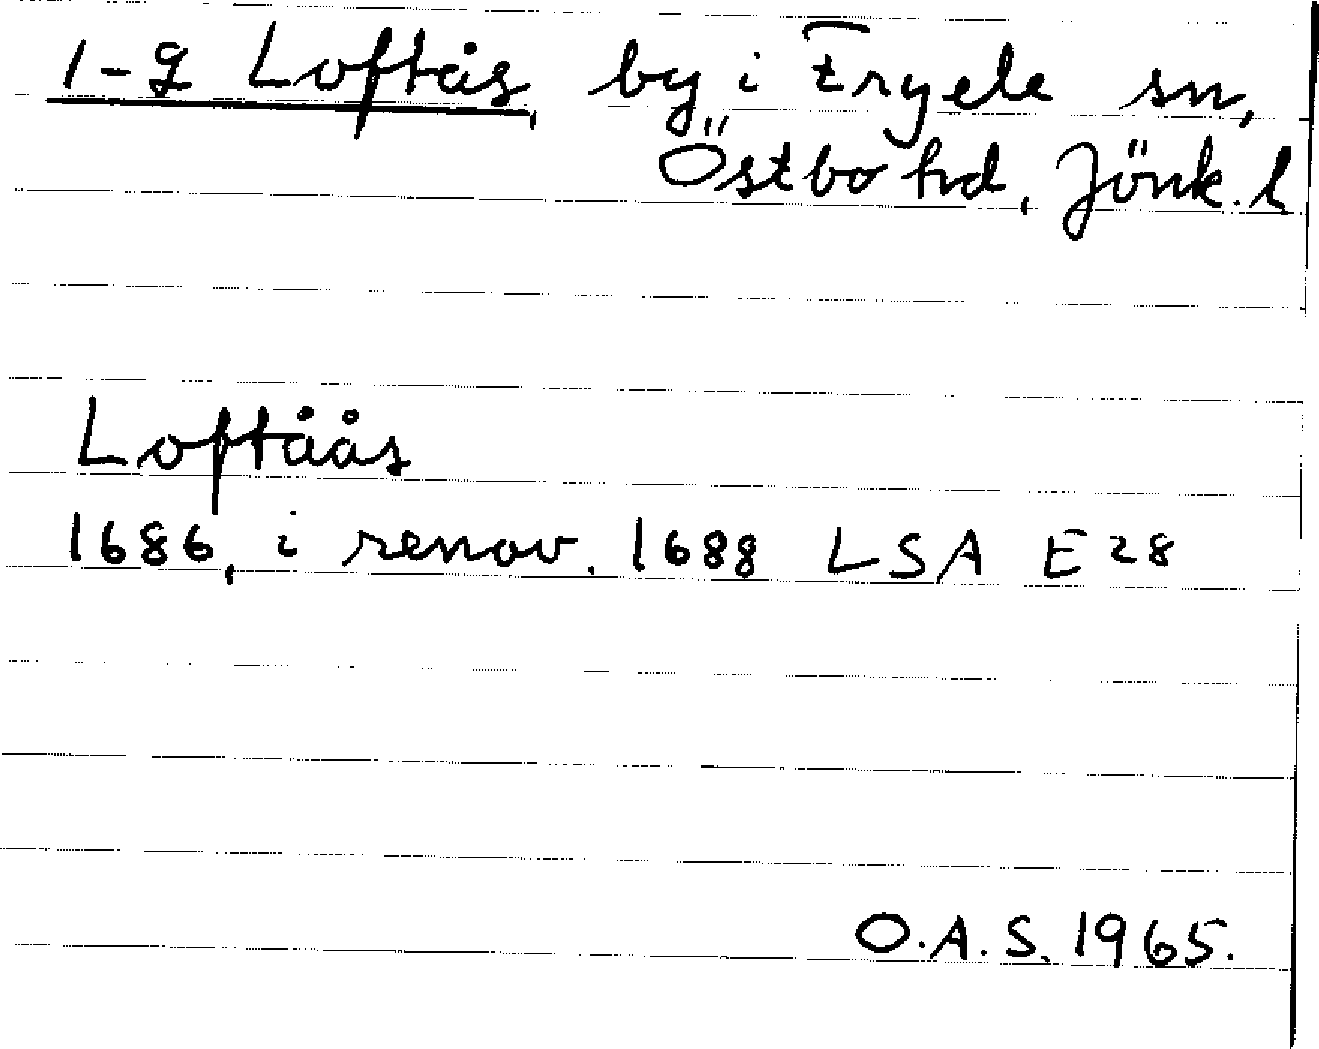 1-2 Loftås, by i Fryele sn,
Östbo hd, Jönk. l
Loftåås
1686, i renov. 1688 LSA E28
O.A.S. 1965.